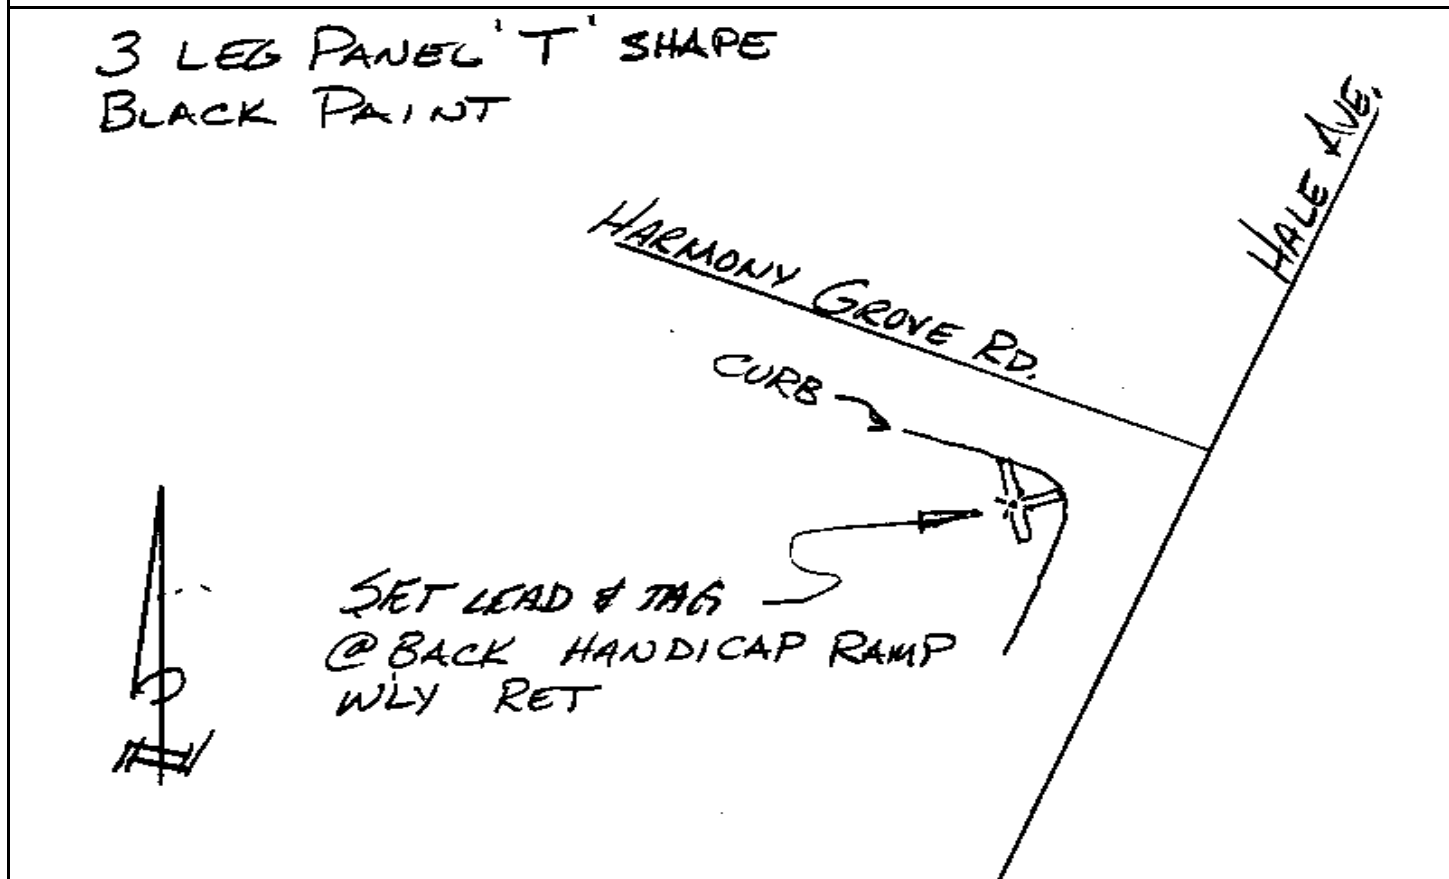 3 LEG PANEL 'T' SHAPE
BLACK PAINT
HALE AVE.
HARMONY GROVE RD.
CURB
SET LEAD & TAG
@ BACK HANDICAP RAMP
WLY RET